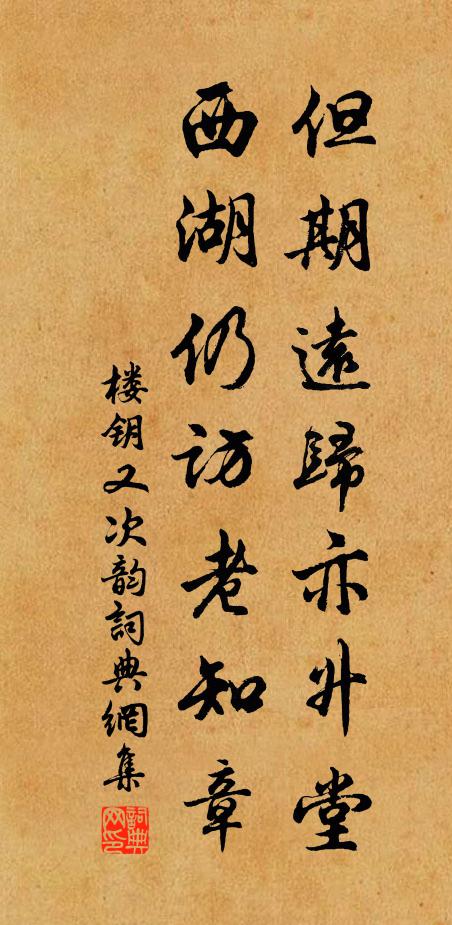 但期遠歸亦升堂
西湖仍访老知章
楼钥又次韵詞典網集
詞典网印